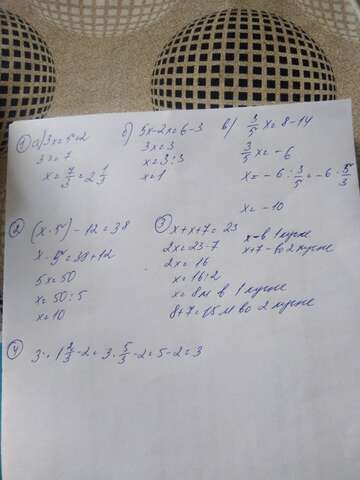 ① а) 3x=5=2 б) 5x-2x=6-3 в) 3/5 x=8-14
3x=7 3x=3 3/5 x=-6
x=7/3=2 1/3 x=3:3 x=-6:3/5=-6·5/3
x=1
x=-10
② (x·5)-12=38 ③ x+x+7=23 x-в 1 куске
x·5=38+12 2x=23-7 x+7-во 2 куске
5x=50 2x=16
x=50:5 x=16:2
x=10 x=8м в 1 куске
8+7=15м во 2 куске
④ 3·1 2/3-2=3·5/3-2=5-2=3